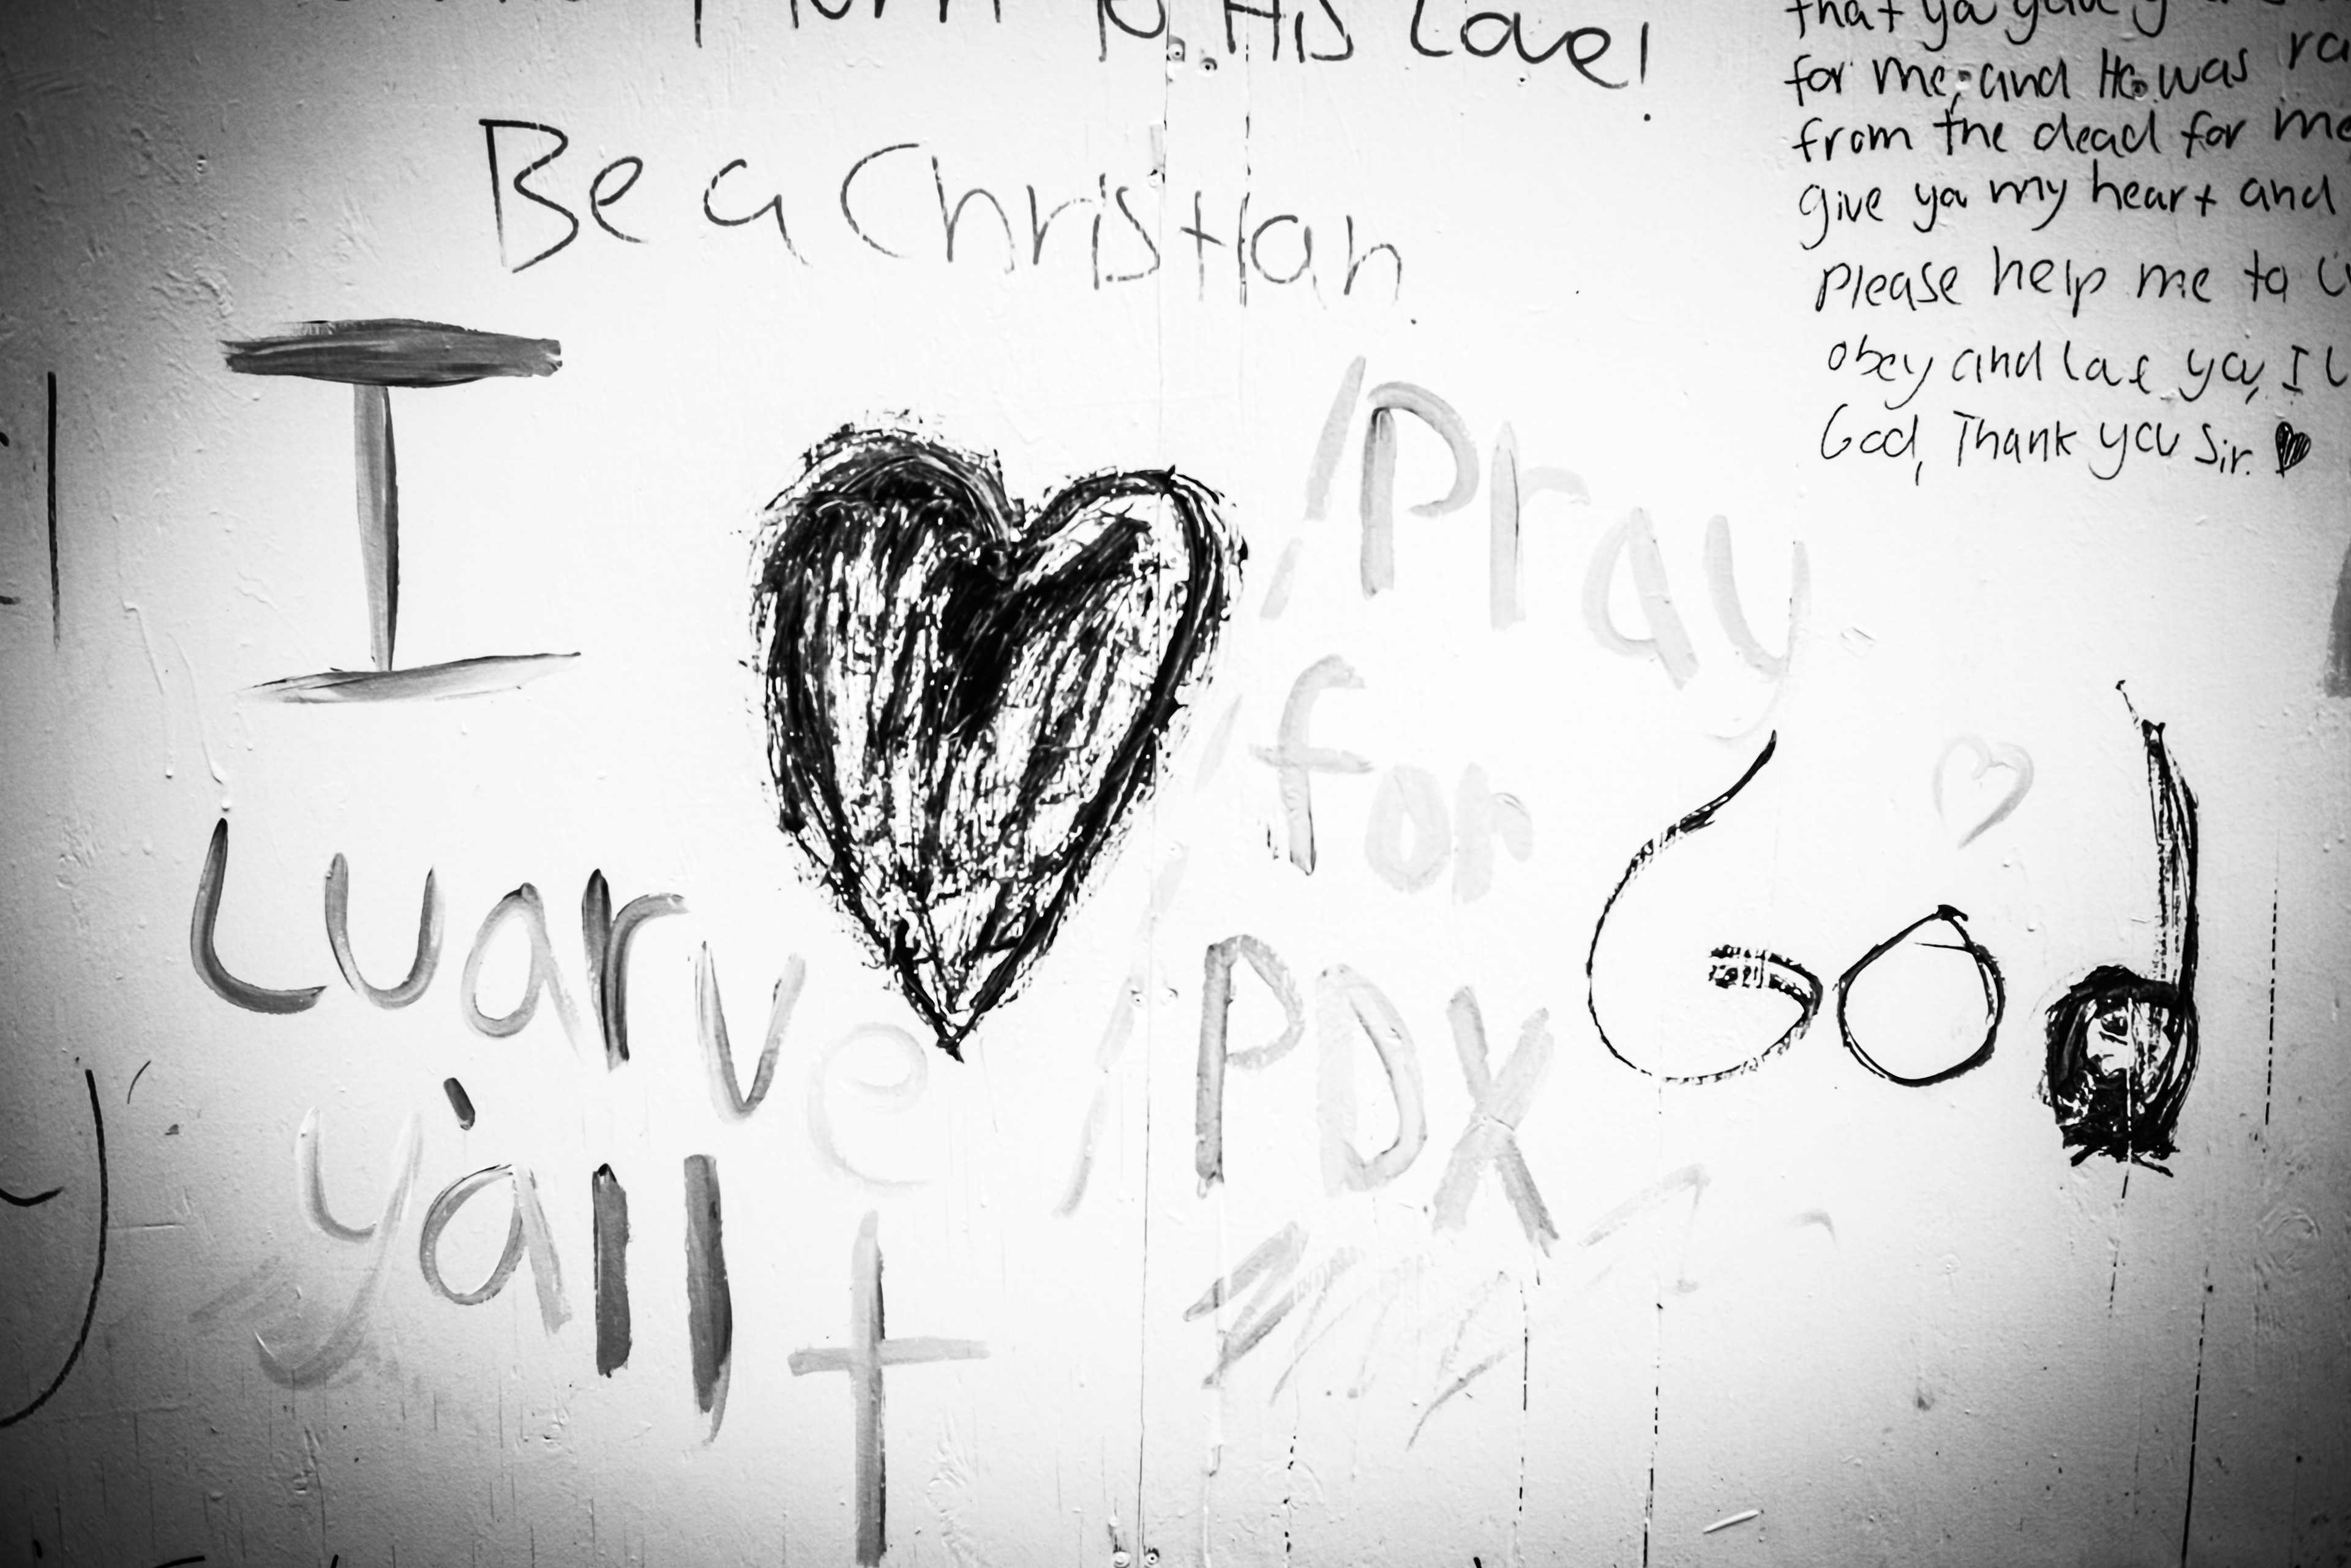 to His Love!
Be a Christian.
that you gave
for me, and He was
from the dead for me
give you my heart and
Please help me to
obey and love you, I
God, Thank you Sir. ♥
I ♥ God
Pray
for
PDX
Luarve
y'all